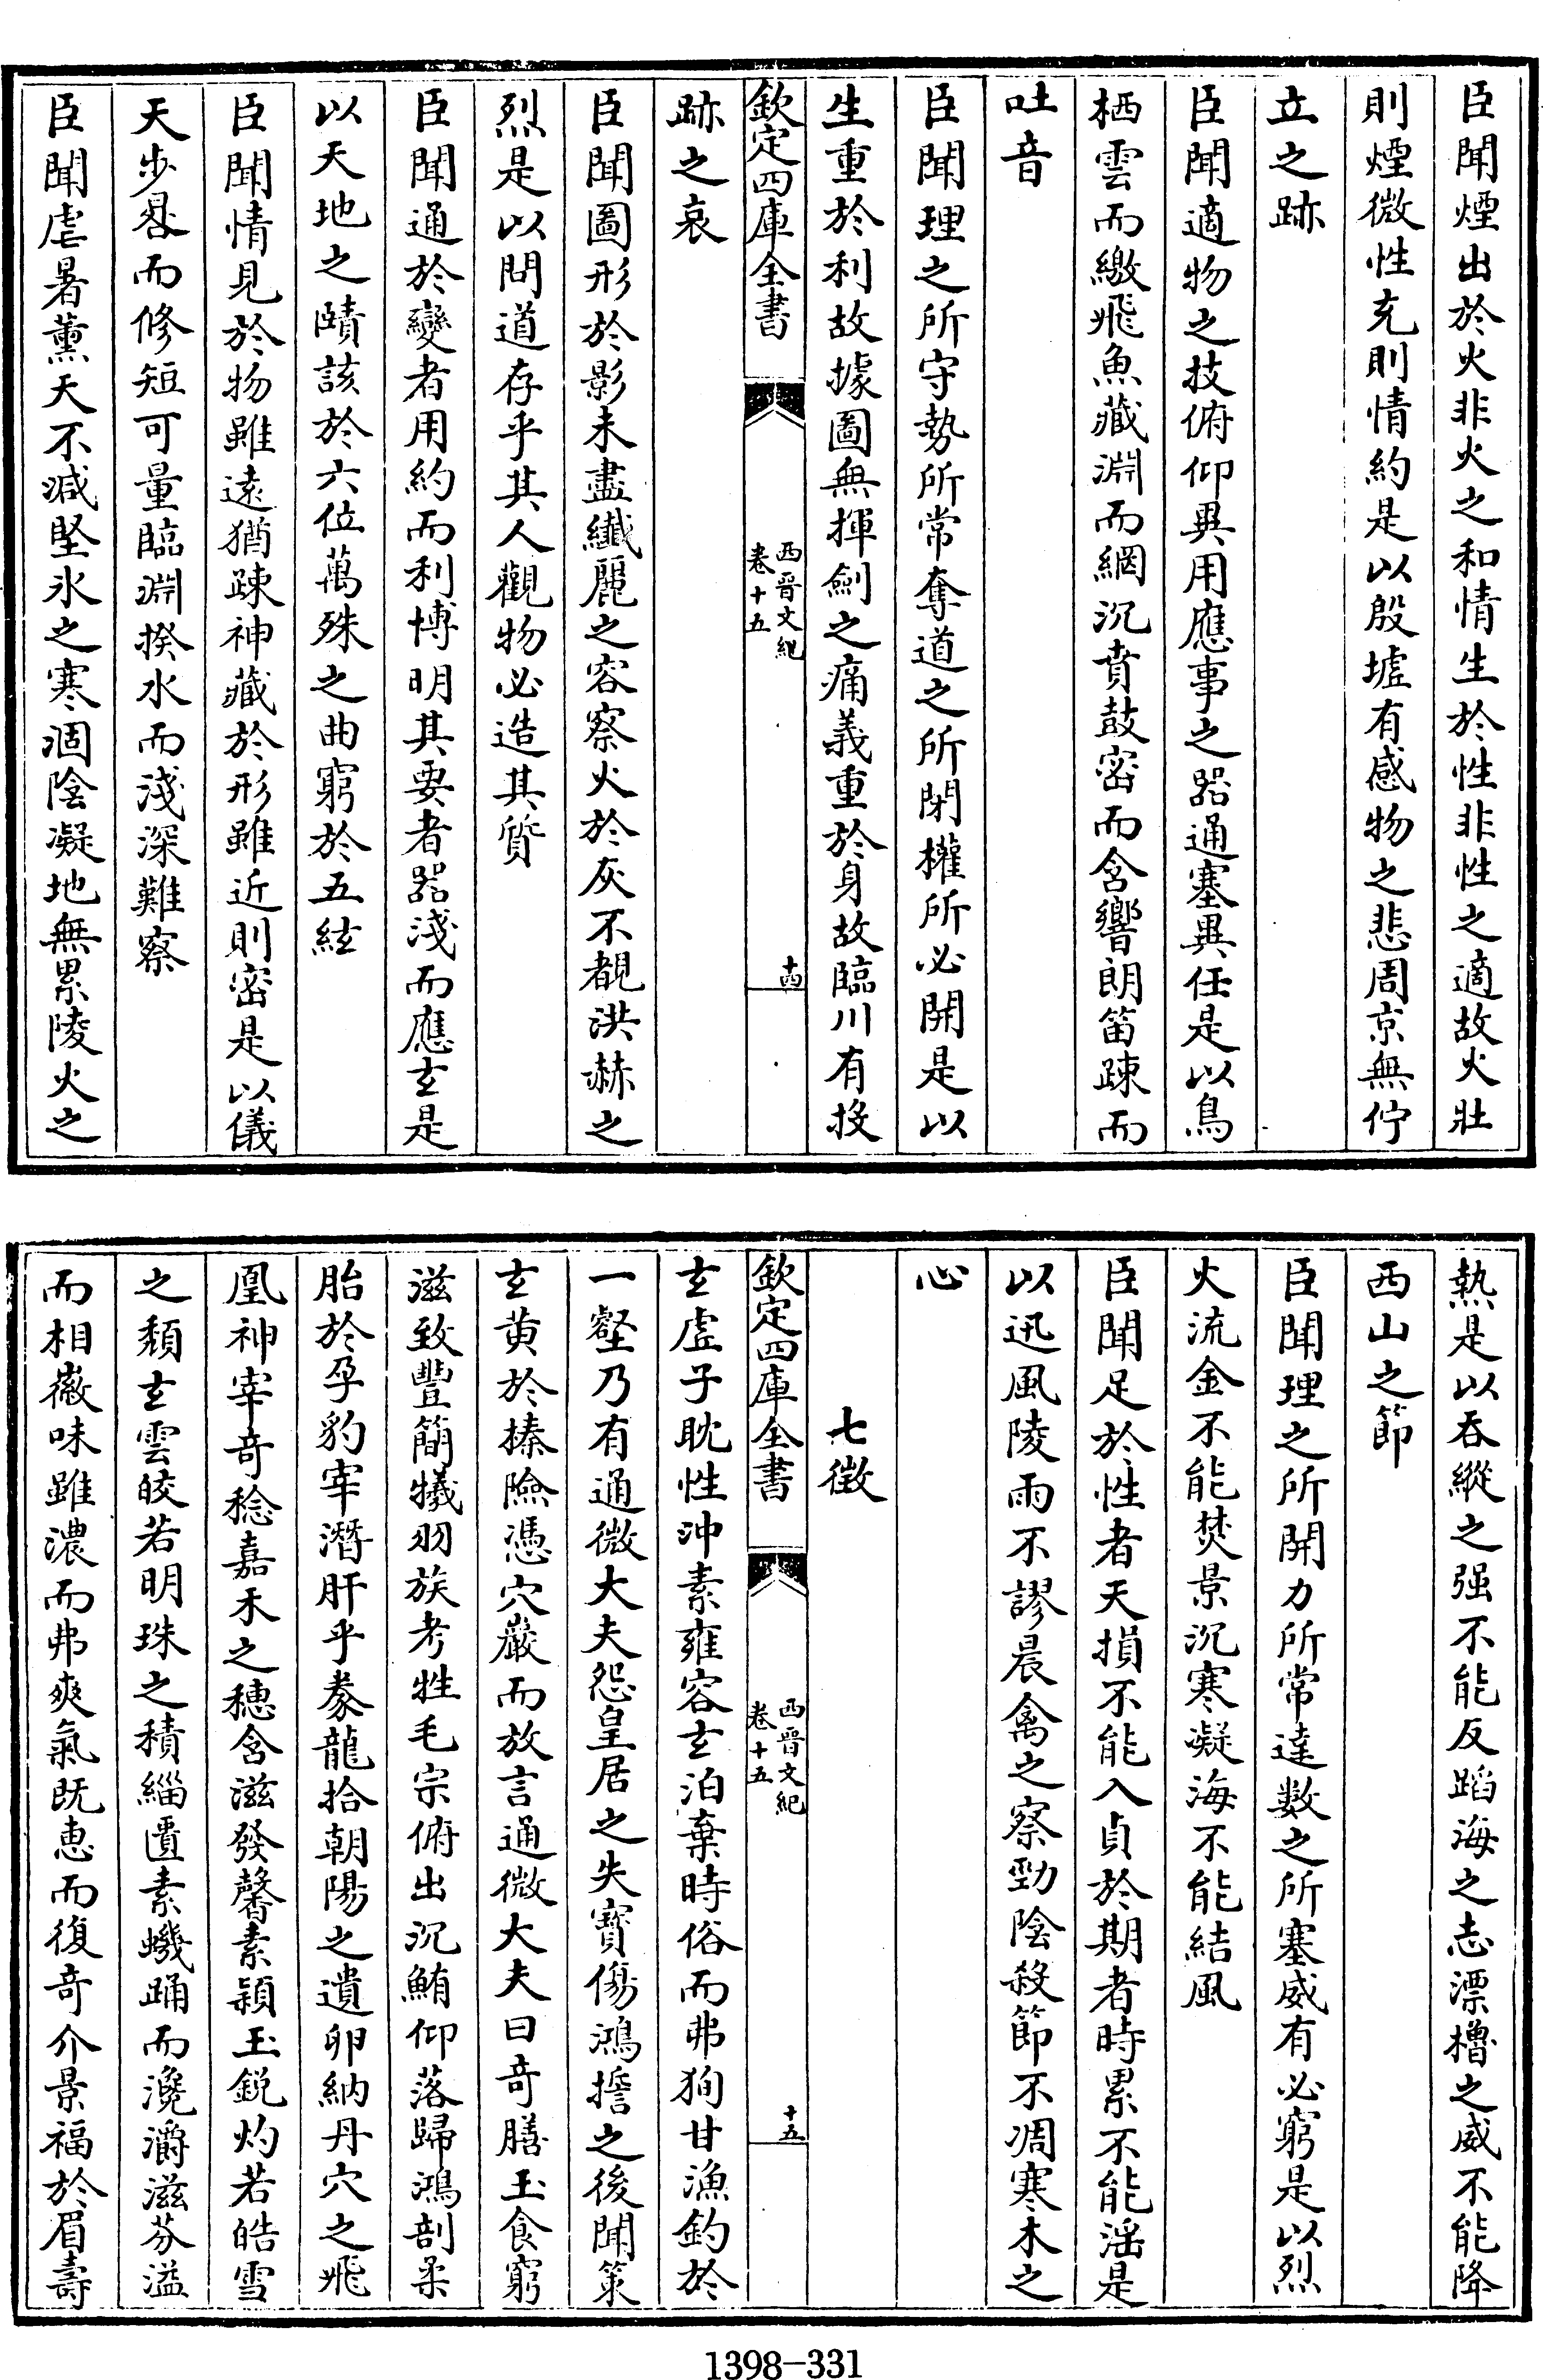 臣聞煙出於火非火之和情生於性非性之適故火壯
則煙微性充則情約是以殷墟有感物之悲周京無佇
立之跡
臣聞適物之技俯仰異用應事之器通塞異任是以鳥
栖雲而繳飛魚藏淵而網沉賁鼓密而含響朗笛踈而
吐音
臣聞理之所守勢所常奪道之所閉權所必開是以
生重於利故據圖無揮劍之痛義重於身故臨川有投
跡之哀
欽定四庫全書
西晉文紀
卷十五
十四
臣聞圖形於影未盡纖麗之容察火於灰不覩洪赫之
烈是以問道存乎其人觀物必造其質
臣聞通於變者用約而利博明其要者器淺而應玄是
以天地之賾該於六位萬殊之曲窮於五絃
臣聞情見於物雖遠猶踈神藏於形雖近則密是以儀
天步晷而修短可量臨淵揆水而淺深難察
臣聞虐暑薰天不減堅氷之寒涸陰凝地無累陵火之
熱是以吞縱之强不能反蹈海之志漂櫓之威不能降
西山之節
臣聞理之所開力所常達數之所塞威有必窮是以烈
火流金不能焚景沉寒凝海不能結風
臣聞足於性者天損不能入貞於期者時累不能淫是
以迅風陵雨不謬晨禽之察勁陰殺節不凋寒木之
心
七徴
欽定四庫全書
西晉文紀
卷十五
十五
玄虛子耽性沖素雍容玄泊棄時俗而弗狥甘漁釣於
一壑乃有通微大夫怨皇居之失寶傷鴻擔之後聞策
玄黄於榛險憑穴巖而放言通微大夫曰奇膳玉食窮
滋致豐簡犧羽族考牲毛宗俯出沉鮪仰落歸鴻剖柔
胎於孕豹宰潛肝乎豢龍拾朝陽之遺卵納丹穴之飛
凰神宰奇稔嘉禾之穗含滋發馨素穎玉鋭灼若皓雪
之頽玄雲皎若明珠之積緇匱素蟣踊而瀺灂滋芬溢
而相徽味雖濃而弗爽氣既惠而復奇介景福於眉壽
1398-331